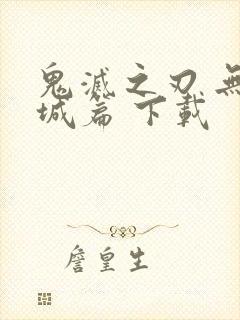 鬼滅之刃 無
城篇 下載
詹皇生